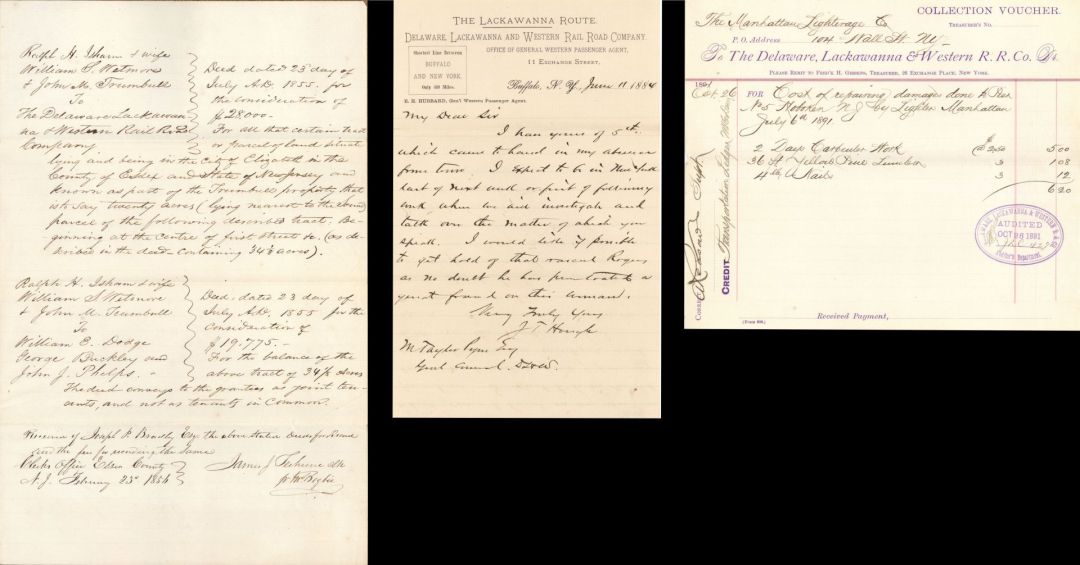 Ralph H. Isham & wife
William S. Wetmore
& John M. Trumbull
To
The Delaware Lackawan
na & Western Rail Road
Company
Deed dated 23d day of
July A.D. 1855. for
the consideration of
$28000.-
For all that certain tract
or parcel of land situate
lying and being in the City of Elizabeth in the
County of Essex and State of New Jersey and
known as part of the Trumbull property that
is to say twenty acres (lying nearest to the
parcel of the following described tract. Be-
ginning at the centre of first street &c. (as de-
scribed in the deed containing 34 acres).
Ralph H. Isham & wife
William S. Wetmore
& John M. Trumbull
To
William E. Dodge
George Buckley and
John J. Phelps. -
Deed. dated 23 day of
July A.D. 1855 for the
Consideration of
$19,775.-
For the balance of the
above tract of 34 Acres
The deed conveys to the grantees as joint ten-
ants, and not as tenants in Common.
of Joseph P. Bradley Esq. the above stated Deeds for Record
and the fee for recording the same
Clerks Office Essex County
N.J. February 23d 1856
James J.
THE LACKAWANNA ROUTE.
DELAWARE, LACKAWANNA AND WESTERN RAIL ROAD COMPANY.
Shortest Line Between
BUFFALO
AND NEW YORK.
Only 409 Miles.
OFFICE OF GENERAL WESTERN PASSENGER AGENT,
11 EXCHANGE STREET,
Buffalo, N. Y., June 11 1884
E. H. HUBBARD, Gen'l Western Passenger Agent.
My Dear Sir
I have yours of 5th
which came to hand in my absence
from town. I expect to be in New York
last of next week or first of following
week when we can investigate and
talk over the matter of which you
speak. I would like if possible
to get hold of that rascal Rogers
as no doubt he has penetrated a
great fraud on this
Very Truly Yours
J T
M Taylor Pyne Esq
Genl Counsel. DL&W.
COLLECTION VOUCHER.
TREASURER'S No.
The Manhattan Lighterage Co
P. O. Address 104 Wall St. NY-
To The Delaware, Lackawanna & Western R. R. Co. Dr.
PLEASE REMIT TO FRED'K H. GIBBENS, TREASURER, 26 EXCHANGE PLACE, NEW YORK.
1891
Oct. 26
FOR Cost of repairing damage done to Pier
No 5 Hoboken N J by Lighter Manhattan
July 6th 1891.
2 Days Carpenter Work @ $2.50 5 00
36 ft Yellow Pine Lumber 3 1 08
4 lb Nails 3 12
6 20
CREDIT Transportation Ledger
CORRECT
Supt.
DELAWARE, LACKAWANNA & WESTERN R. R. CO.
AUDITED
OCT 26 1891
Received Payment,